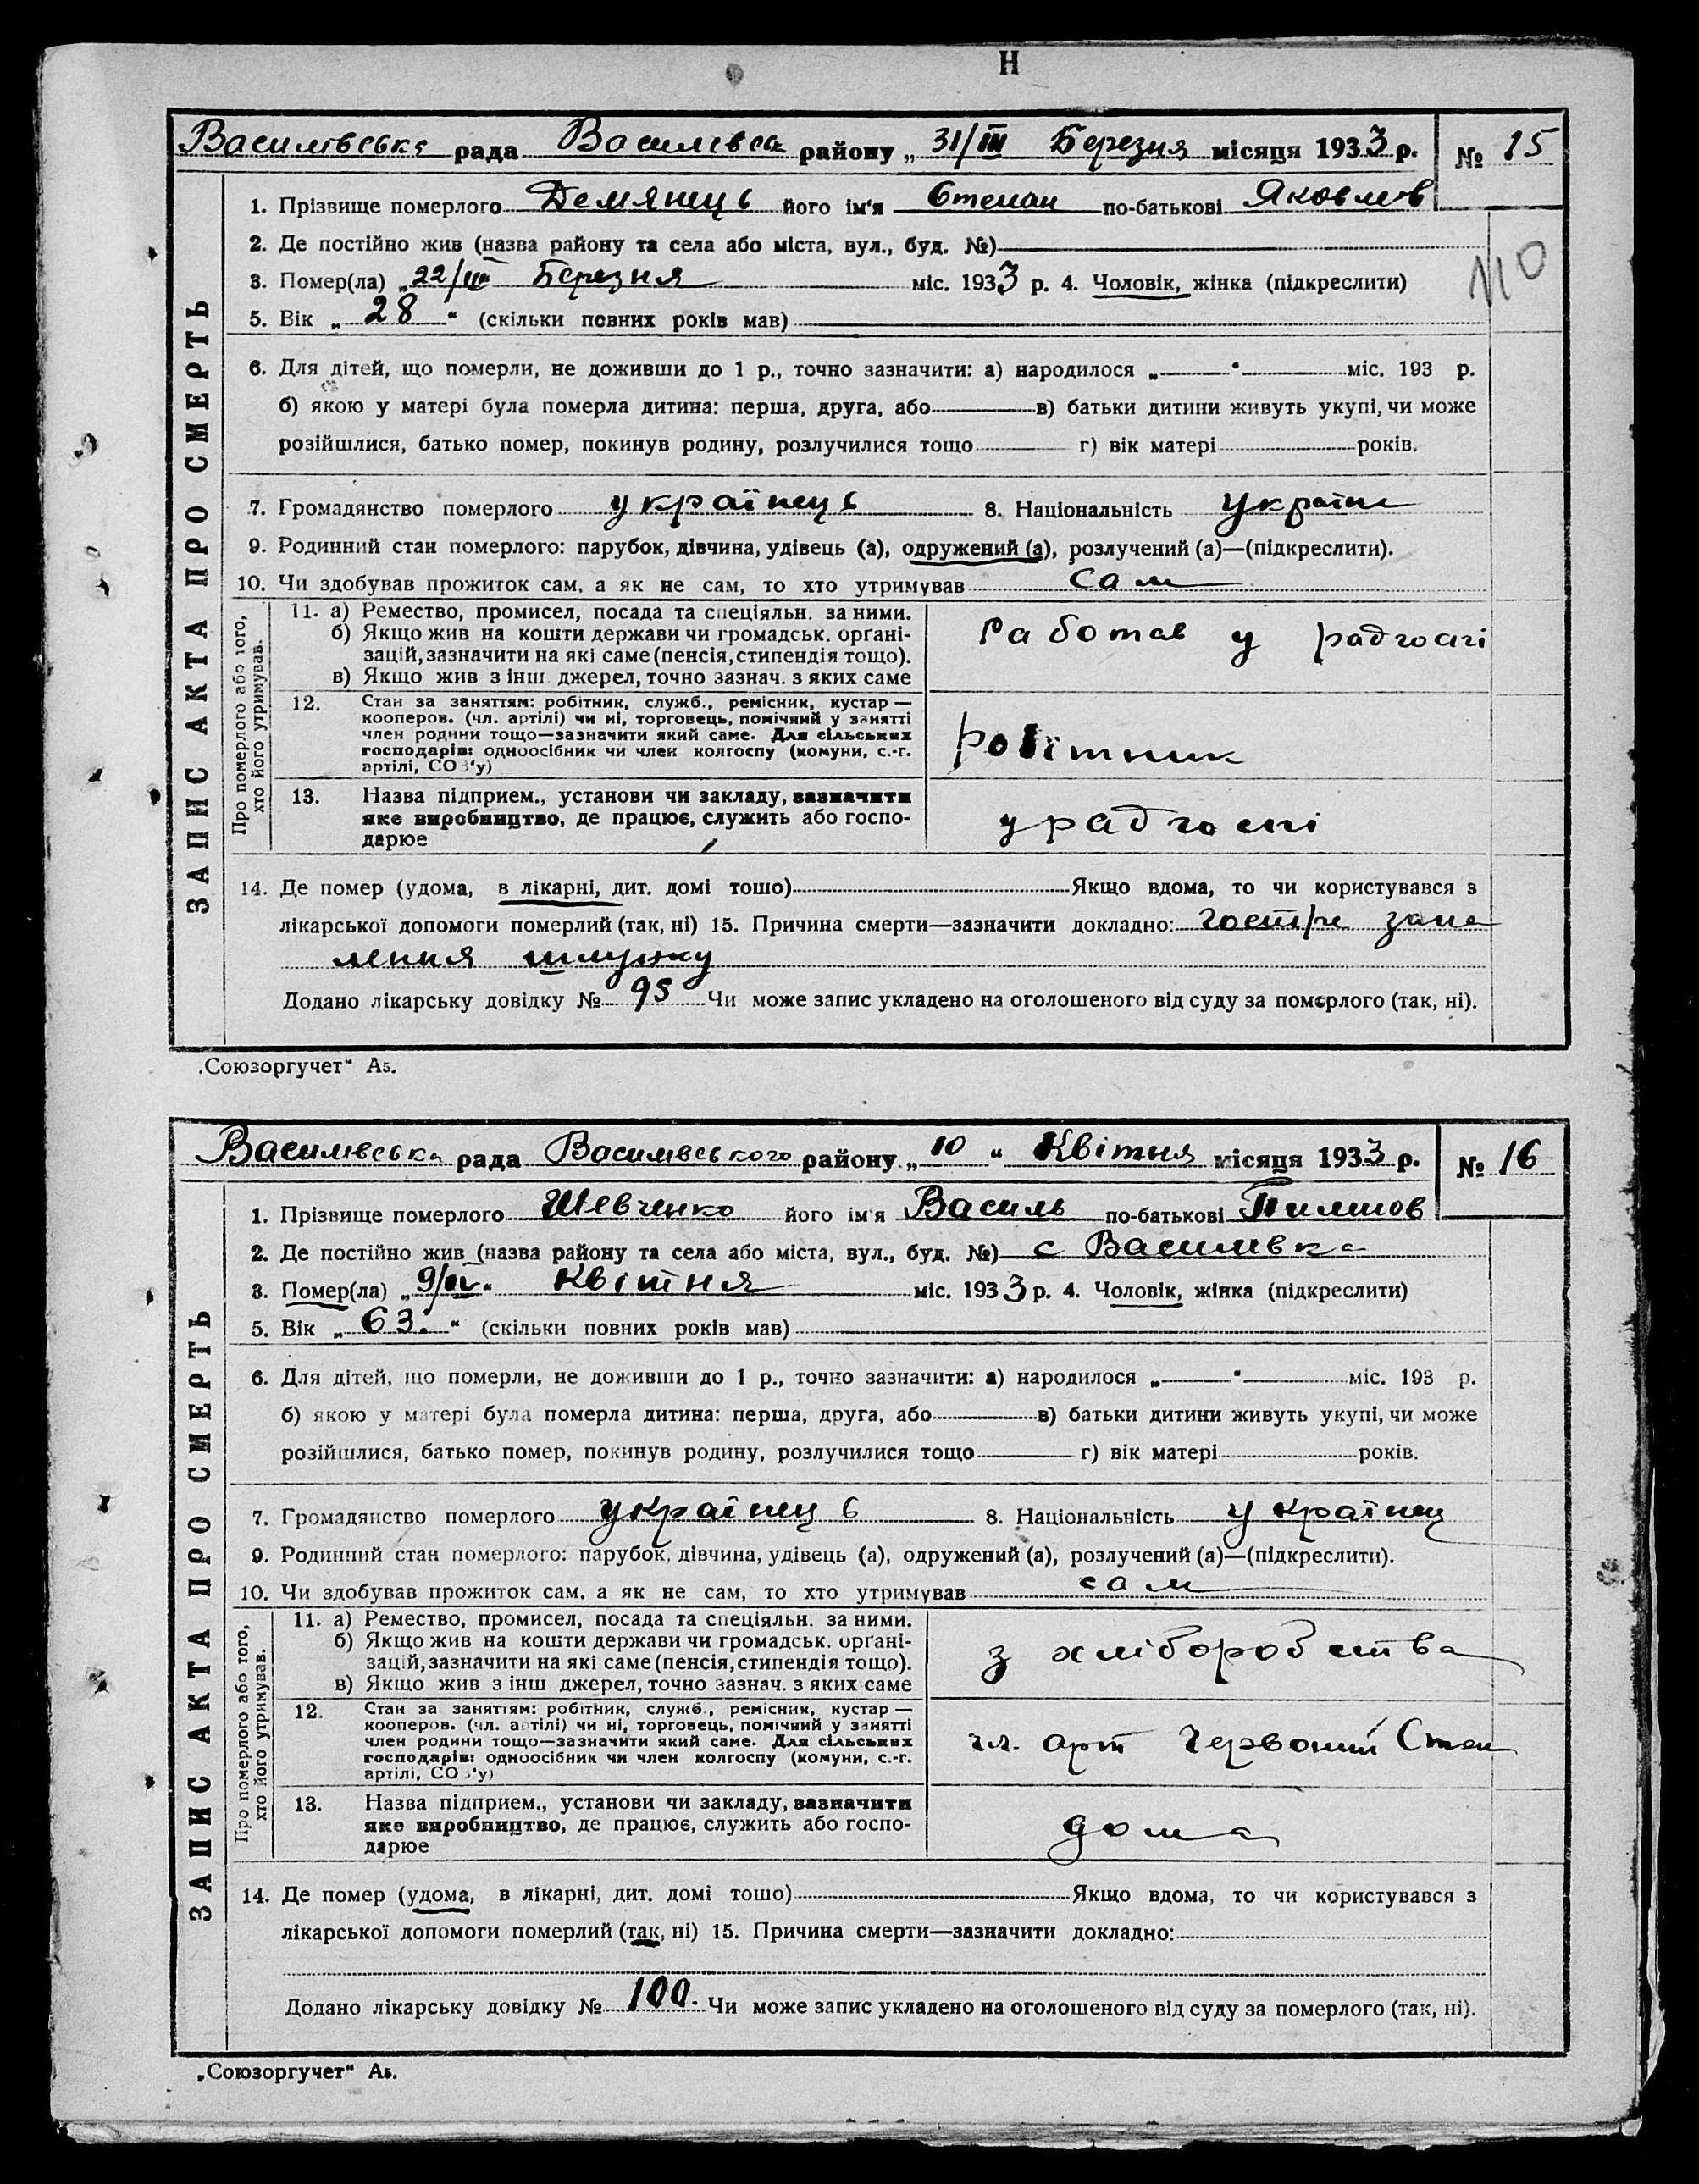 Н
Василівська рада Василівськ району „ 31/III Березня місяця 1933 р. № 15
1. Прізвище померлого Демянець його ім'я Степан по-батькові Яковлев
2. Де постійно жив (назва району та села або міста, вул., буд. №)
3. Помер(ла) „ 22/III Березня міс. 1933 р. 4. Чоловік, жінка (підкреслити)
5. Вік „ 28 “ (скільки повних років мав)
6. Для дітей, що померли, не доживши до 1 р., точно зазначити: а) народилося „ “ міс. 193 р.
б) якою у матері була померла дитина: перша, друга, або в) батьки дитини живуть укупі, чи може
розійшлися, батько помер, покинув родину, розлучилися тощо г) вік матері років.
7. Громадянство померлого українець 8. Національність Україн
9. Родинний стан померлого: парубок, дівчина, удівець (а), одружений (а), розлучений (а)—(підкреслити).
10. Чи здобував прожиток сам, а як не сам, то хто утримував сам
ЗАПИС АКТА ПРО СМЕРТЬ
Про померлого або того, хто його утримував.
11. а) Ремество, промисел, посада та спеціяльн. за ними.
б) Якщо жив на кошти держави чи громадськ. орґані-
зацій, зазначити на які саме (пенсія, стипендія тощо).
в) Якщо жив з інш джерел, точно зазнач. з яких саме
Работав у радгоспі
12. Стан за заняттям: робітник, служб., ремісник, кустар —
кооперов. (чл. артілі) чи ні, торговець, помічний у занятті
член родини тощо—зазначити який саме. Для сільських
господарів: одноосібник чи член колгоспу (комуни, с.-г.
артілі, СОЗ'у)
робітник
13. Назва підприєм., установи чи закладу, зазначити
яке виробництво, де працює, служить або госпо-
дарює
у радгоспі
14. Де помер (удома, в лікарні, дит. домі тошо) Якщо вдома, то чи користувався з
лікарської допомоги померлий (так, ні) 15. Причина смерти—зазначити докладно: гостре запа
лення шлунку
Додано лікарську довідку № 95 Чи може запис укладено на оголошеного від суду за померлого (так, ні).
„Союзоргучет“ А5.
Василівська рада Василівського району „ 10 “ Квітня місяця 1933 р. № 16
1. Прізвище померлого Шевченко його ім'я Василь по-батькові Пилипов
2. Де постійно жив (назва району та села або міста, вул., буд. №) с Василівка
3. Помер(ла) „ 9/IV “ Квітня міс. 1933 р. 4. Чоловік, жінка (підкреслити)
5. Вік „ 63. “ (скільки повних років мав)
6. Для дітей, що померли, не доживши до 1 р., точно зазначити: а) народилося „ “ міс. 193 р.
б) якою у матері була померла дитина: перша, друга, або в) батьки дитини живуть укупі, чи може
розійшлися, батько помер, покинув родину, розлучилися тощо г) вік матері років.
7. Громадянство померлого українець 8. Національність українец
9. Родинний стан померлого: парубок, дівчина, удівець (а), одружений (а), розлучений (а)—(підкреслити).
10. Чи здобував прожиток сам, а як не сам, то хто утримував сам
ЗАПИС АКТА ПРО СМЕРТЬ
Про померлого або того, хто його утримував.
11. а) Ремество, промисел, посада та спеціяльн. за ними.
б) Якщо жив на кошти держави чи громадськ. орґані-
зацій, зазначити на які саме (пенсія, стипендія тощо).
в) Якщо жив з інш джерел, точно зазнач. з яких саме
з хліборобства
12. Стан за заняттям: робітник, служб., ремісник, кустар —
кооперов. (чл. артілі) чи ні, торговець, помічний у занятті
член родини тощо—зазначити який саме. Для сільських
господарів: одноосібник чи член колгоспу (комуни, с.-г.
артілі, СОЗ'у)
чл. арт Червоний Степ
13. Назва підприєм., установи чи закладу, зазначити
яке виробництво, де працює, служить або госпо-
дарює
дома
14. Де помер (удома, в лікарні, дит. домі тошо) Якщо вдома, то чи користувався з
лікарської допомоги померлий (так, ні) 15. Причина смерти—зазначити докладно:
Додано лікарську довідку № 100. Чи може запис укладено на оголошеного від суду за померлого (так, ні).
„Союзоргучет“ А5.